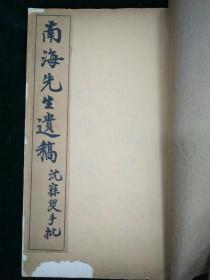 南海先生遺稿
沈寐叟手批